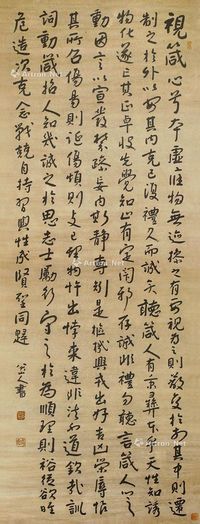 視箴心兮本虛應物無迹操之有要視為之則蔽交於前其中則遷
制之於外以安其內克己復禮久而誠矣聽箴人有秉彝本乎天性知誘
物化遂亡其正卓彼先覺知止有定閑邪存誠非禮勿聽言箴人心之
動因言以宣發禁躁妄內斯靜專矧是樞機興戎出好吉凶榮辱惟
其所召傷易則誕傷煩則支己肆物忤出悖來違非法不道欽哉訓
詞動箴哲人知幾誠之於思志士勵行守之於為順理則裕從欲惟
危造次克念戰兢自持習與性成聖賢同歸
八大山人書